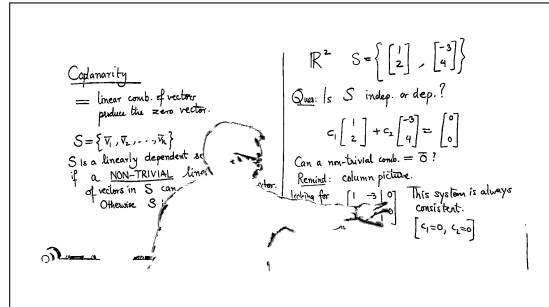 Coplanarity
= linear comb. of vectors
produce the zero vector.
S = {v̅₁, v̅₂, . . ., v̅ₖ}
S is a linearly dependent
if a NON-TRIVIAL
of vectors in S can
Otherwise S
ℝ² S = { [1 2], [-3 4] }
Ques: Is S indep. or dep.?
c₁ [1 2] + c₂ [-3 4] = [0 0]
Can a non-trivial comb. = 0̅ ?
Remind: column picture.
looking for [1 -3 | 0 This system is always
consistent.
[c₁=0, c₂=0]